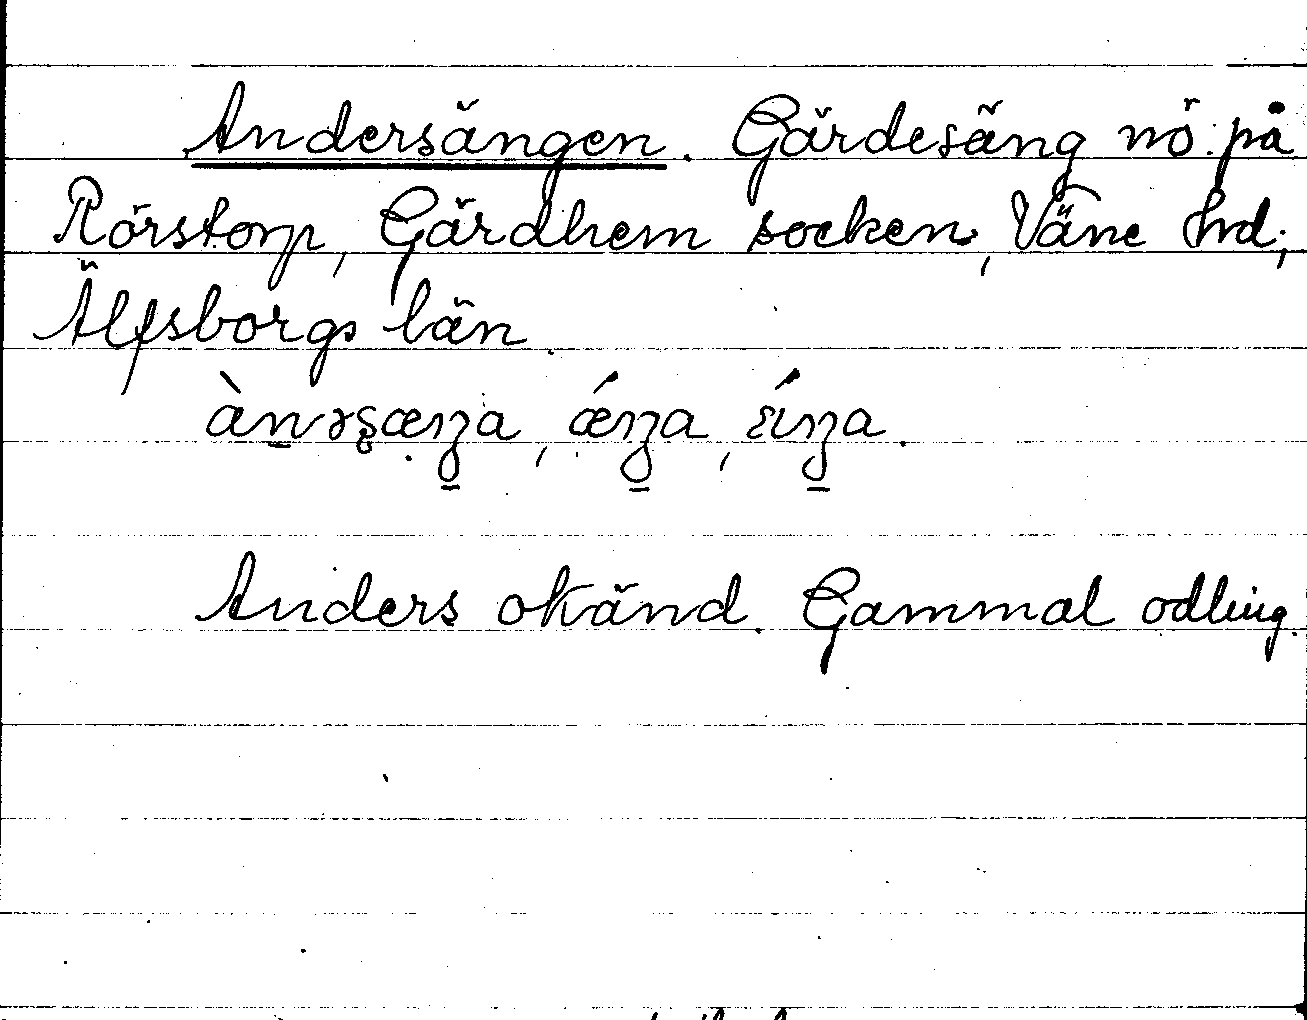 Andersängen. Gärdesäng nö. på
Rörstorp, Gärdhem socken, Väne hd,
Älfsborgs län.
Anders okänd. Gammal odling.